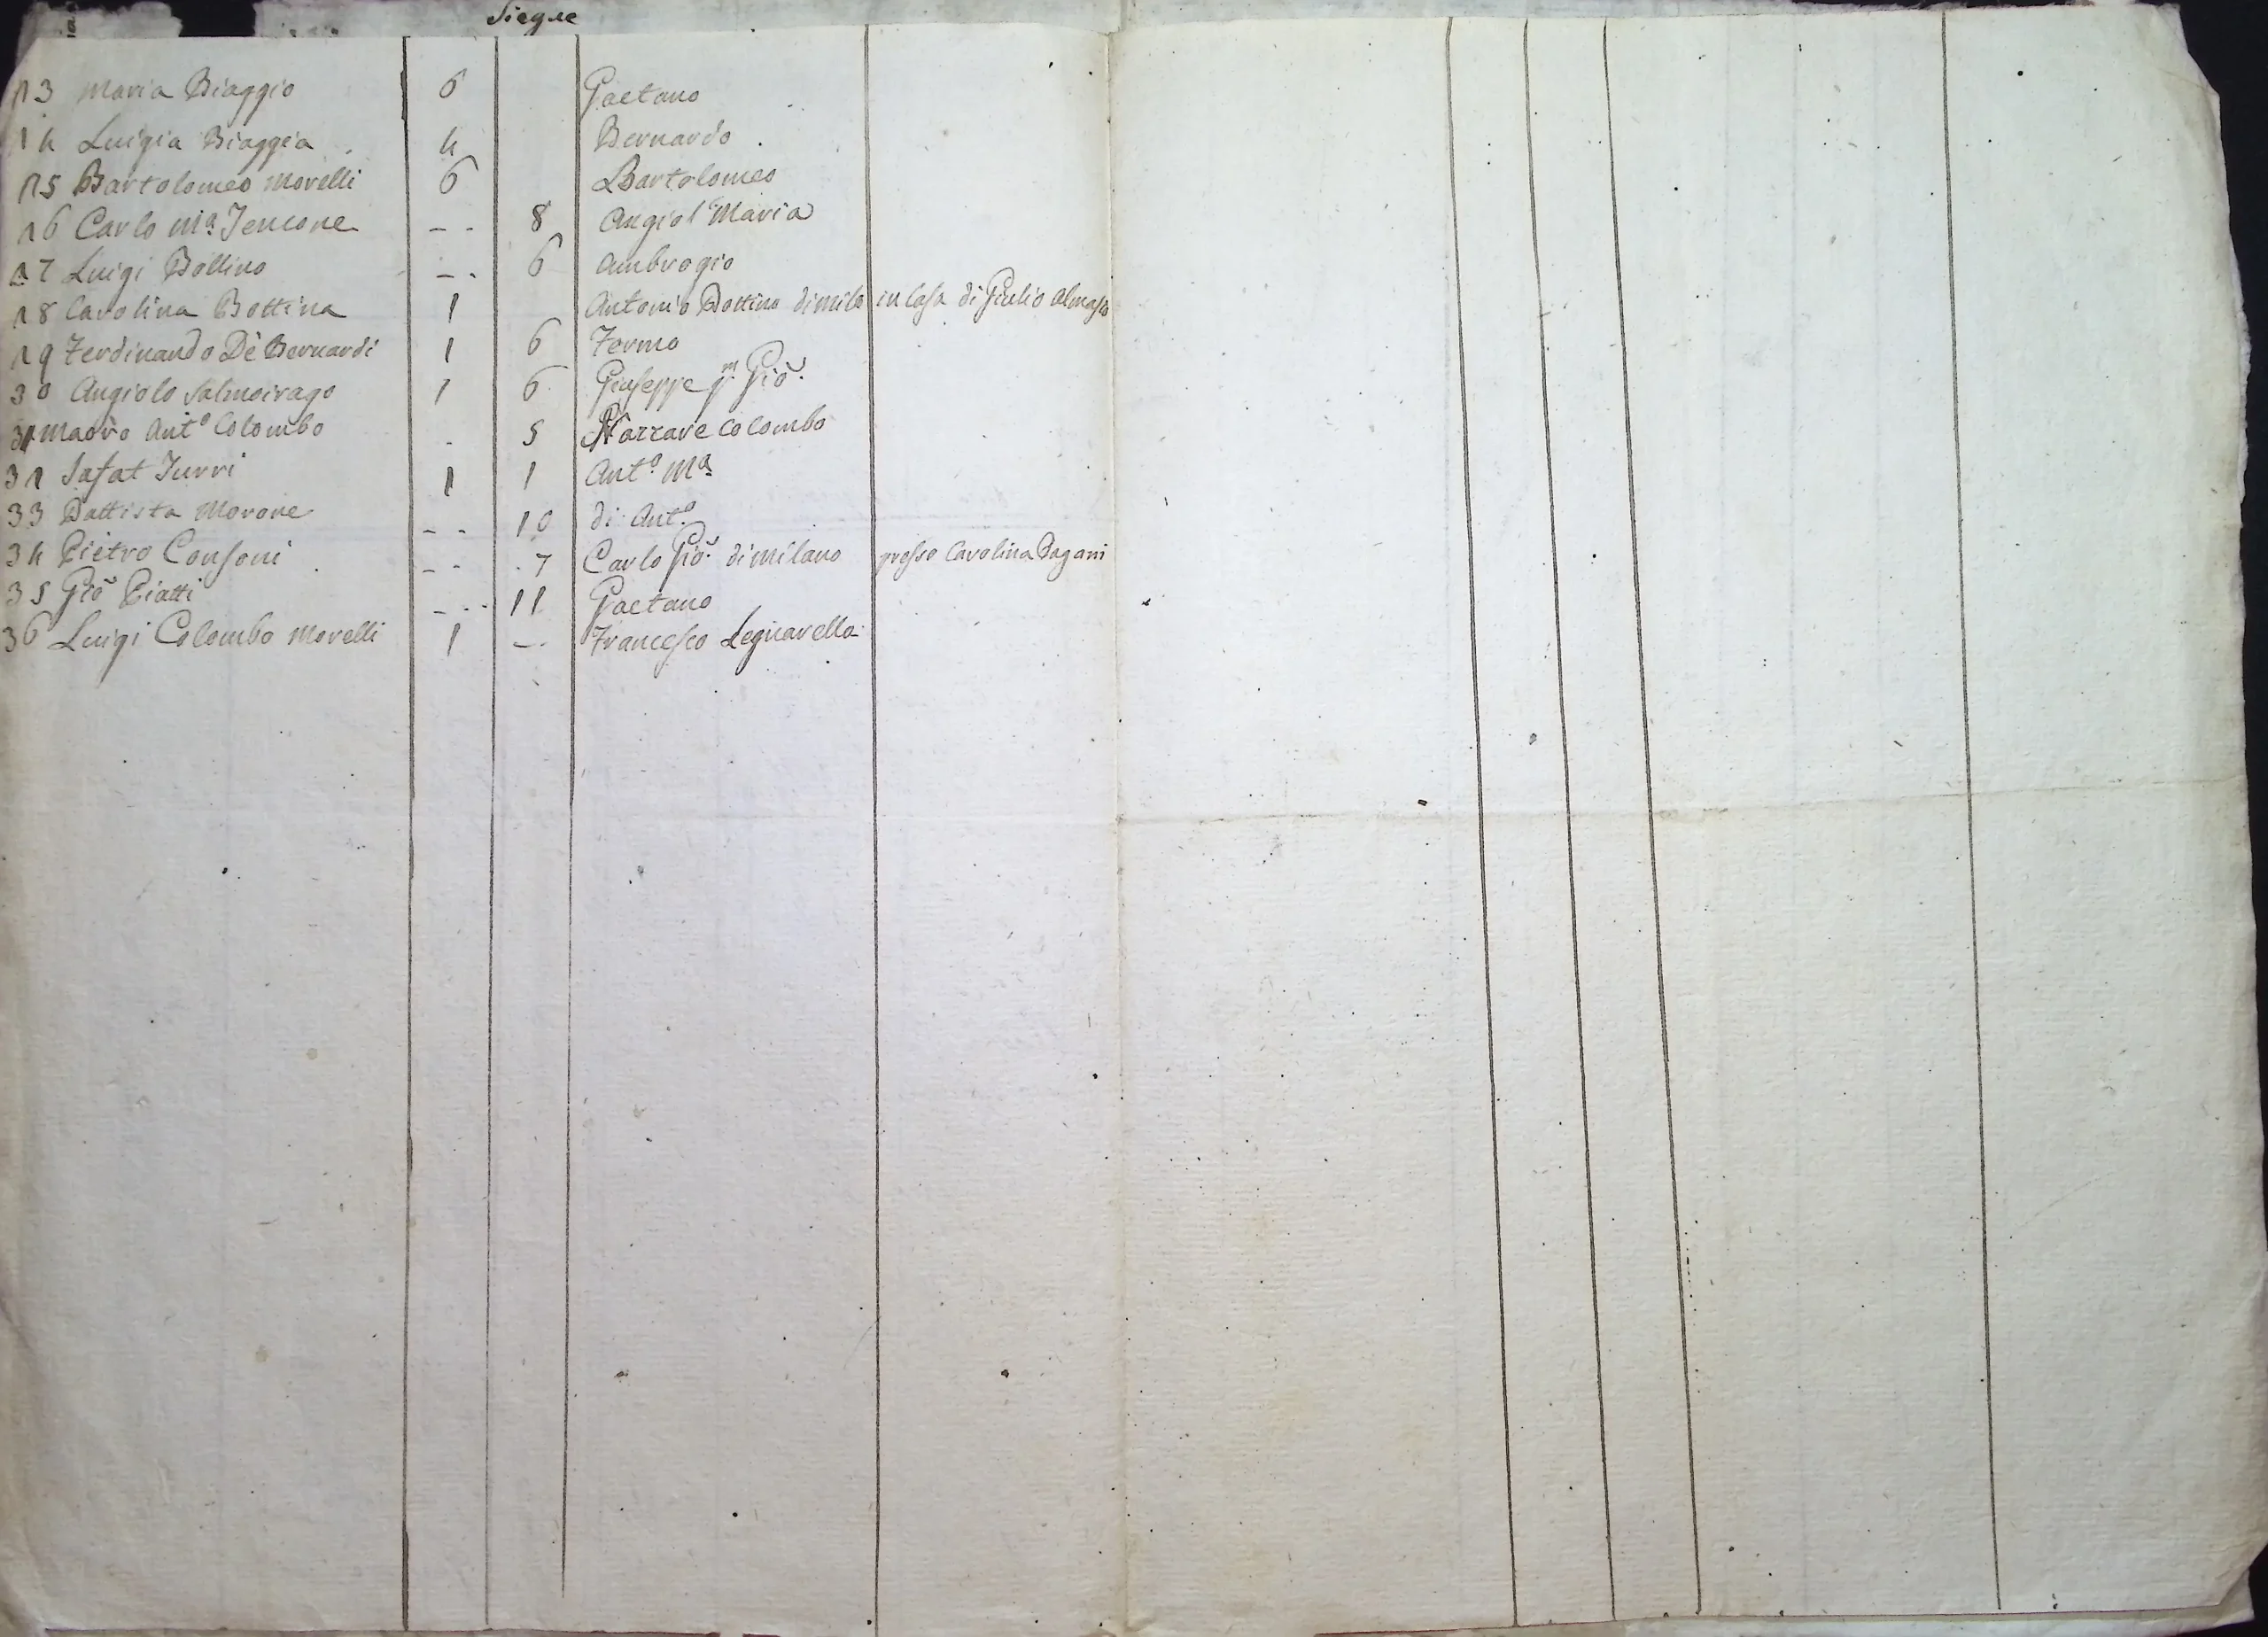 Siegue
23 Maria Biaggio 6 Gaetano
24 Luigia Biaggia 4 Bernardo
25 Bartolomeo Morelli 6 Bartolomeo
26 Carlo Mª Jencone -- 8 Angiol Maria
27 Luigi Bollino -- 6 Ambrogio
28 Carolina Bottina 1 Antonio Bottino di Mila in Casa di Giulio Almasio
29 Ferdinando De Bernardi 1 6 Fermo
30 Angiolo Salmoirago 1 6 Giuseppe qm Gio.
31 Mauro Antº Colombo - 5 Nazzare Colombo
32 Jafat Turri 1 1 Antº Mª
33 Battista Morone -- 10 di Antº
34 Pietro Consoni -- 7 Carlo Gio. di Milano presso Carolina Pagani
35 Gio Piatti -- 11 Gaetano
36 Luigi Colombo Morelli 1 -- Francesco Legnarello